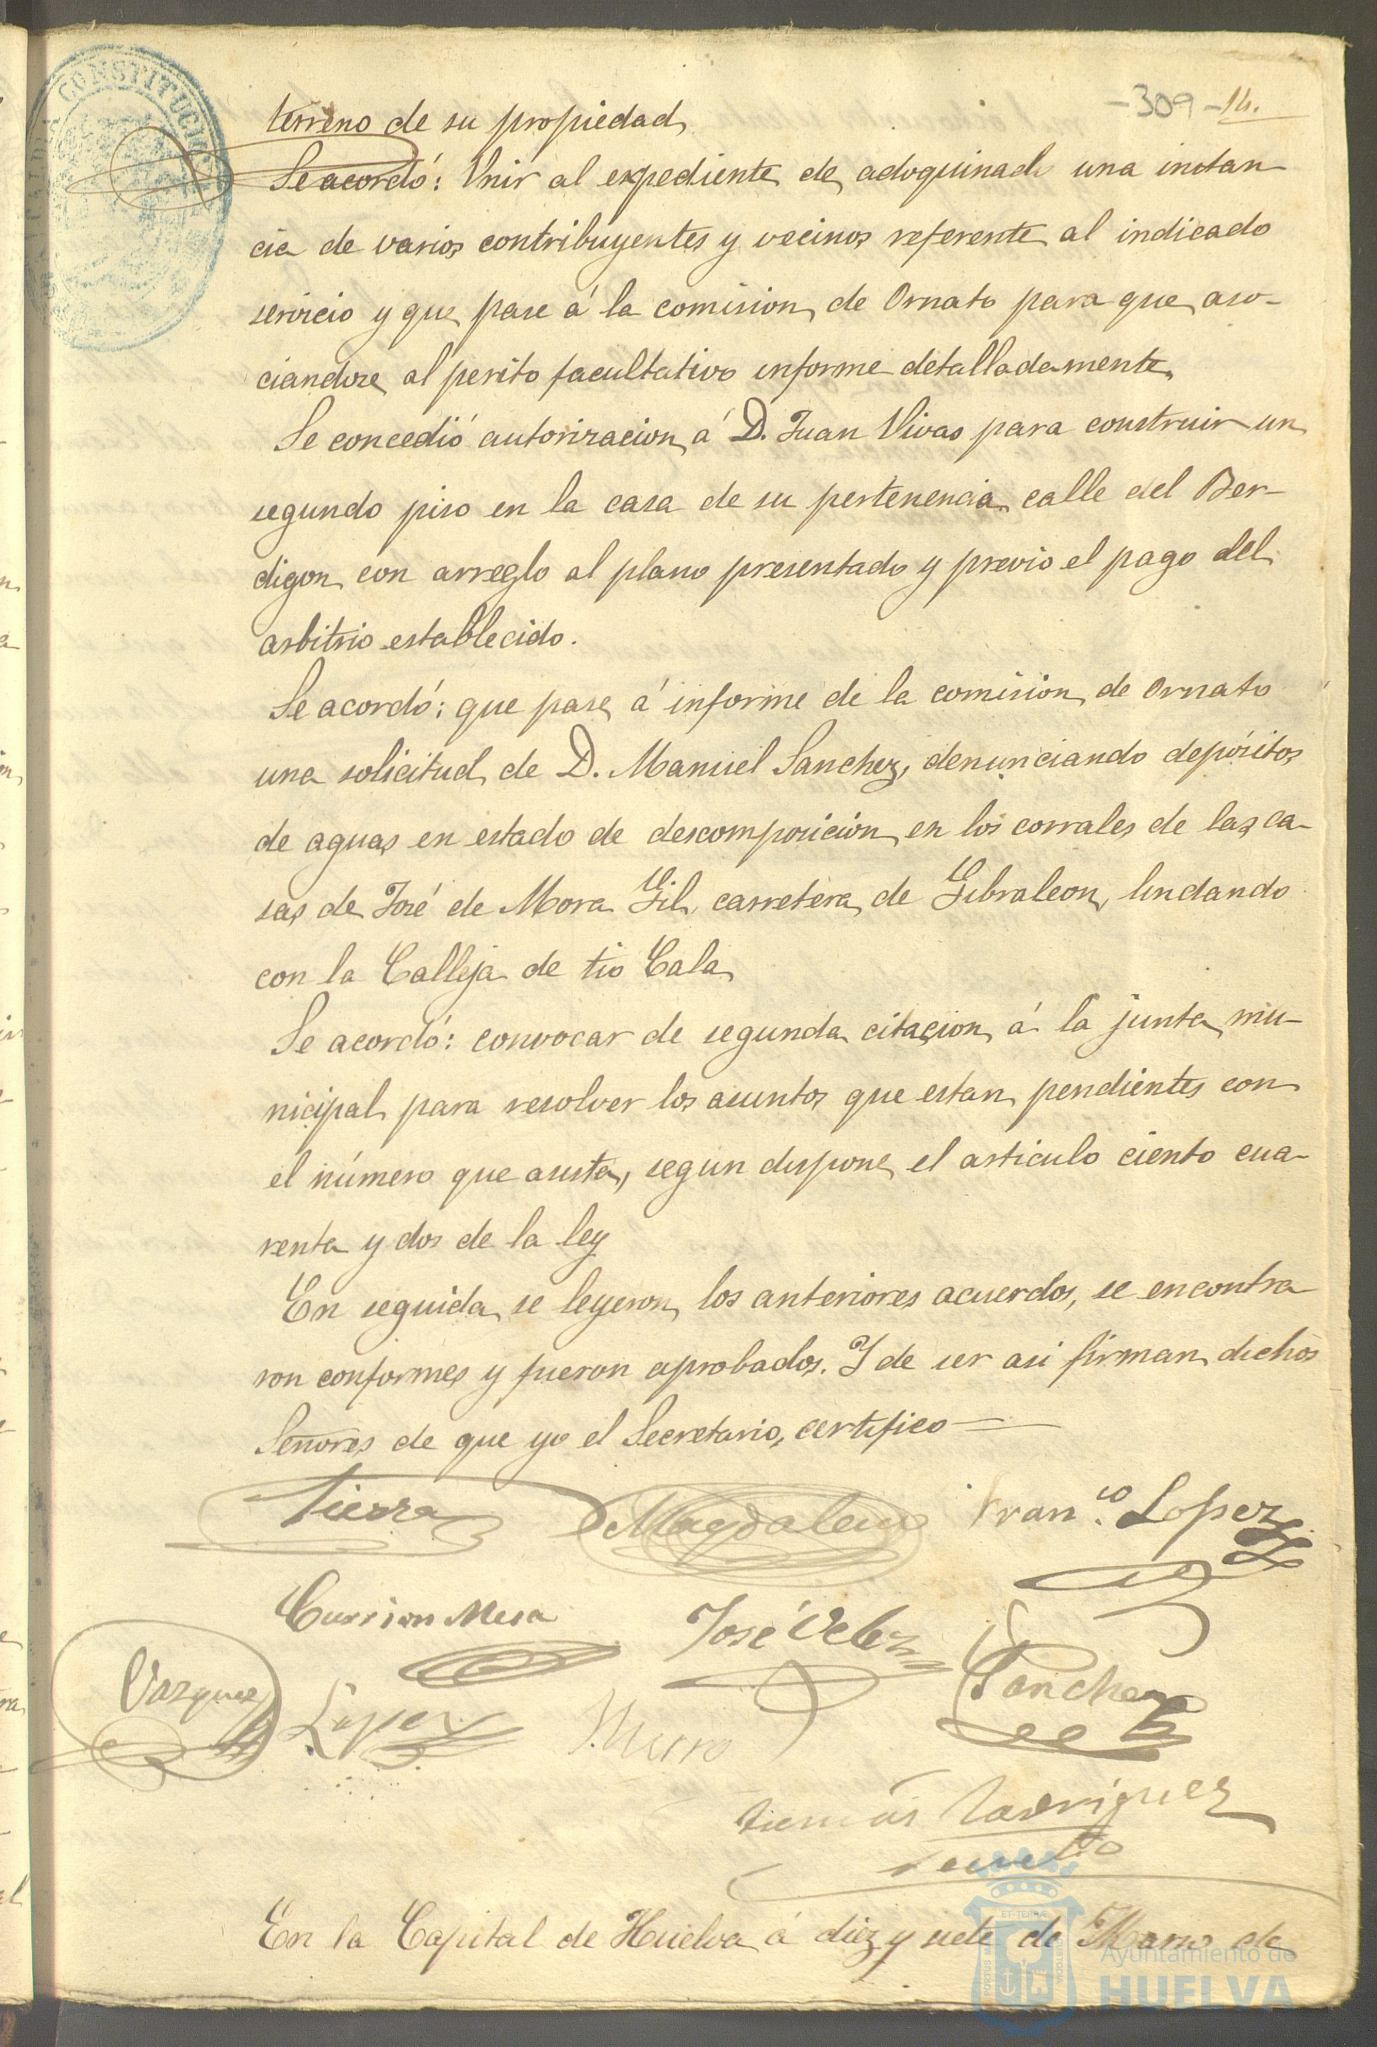 -309- 14.
CONSTITUCIO
terreno de su propiedad
Se acordó: Unir al expediente de adoquinado una instan
cia de varios contribuyentes y vecinos referente al indicado
servicio y que pase á la comision de Ornato para que aso-
ciandose al perito facultativo informe detalladamente
Se concedió autorizacion á D. Juan Vivas para construir un
segundo piso en la casa de su pertenencia calle del Ber-
digon con arreglo al plano presentado y previo el pago del
arbitrio establecido.
Se acordó: que pase á informe de la comision de Ornato
una solicitud de D. Manuel Sanchez, denunciando depósitos
de aguas en estado de descomposicion en los corrales de las ca-
sas de José de Mora Gil, carretera de Gibraleon, lindando
con la Calleja de tio Cala
Se acordó: convocar de segunda citacion á la junta mu-
nicipal para resolver los asuntos que estan pendientes con
el número que asista, segun dispone el articulo ciento cua-
renta y dos de la ley
En seguida se leyeron los anteriores acuerdos, se encontra
ron conformes y fueron aprobados. Y de ser asi firman dichos
Señores de que yo el Secretario, certifico
Tierra Magdaleno Fran.co Lopez
Carrion Mesa José Velez
Sanchez
Vazquez Lopez Muro
Rodriguez
En la Capital de Huelva á diez y siete de Marzo de
Ayuntamiento de
HUELVA